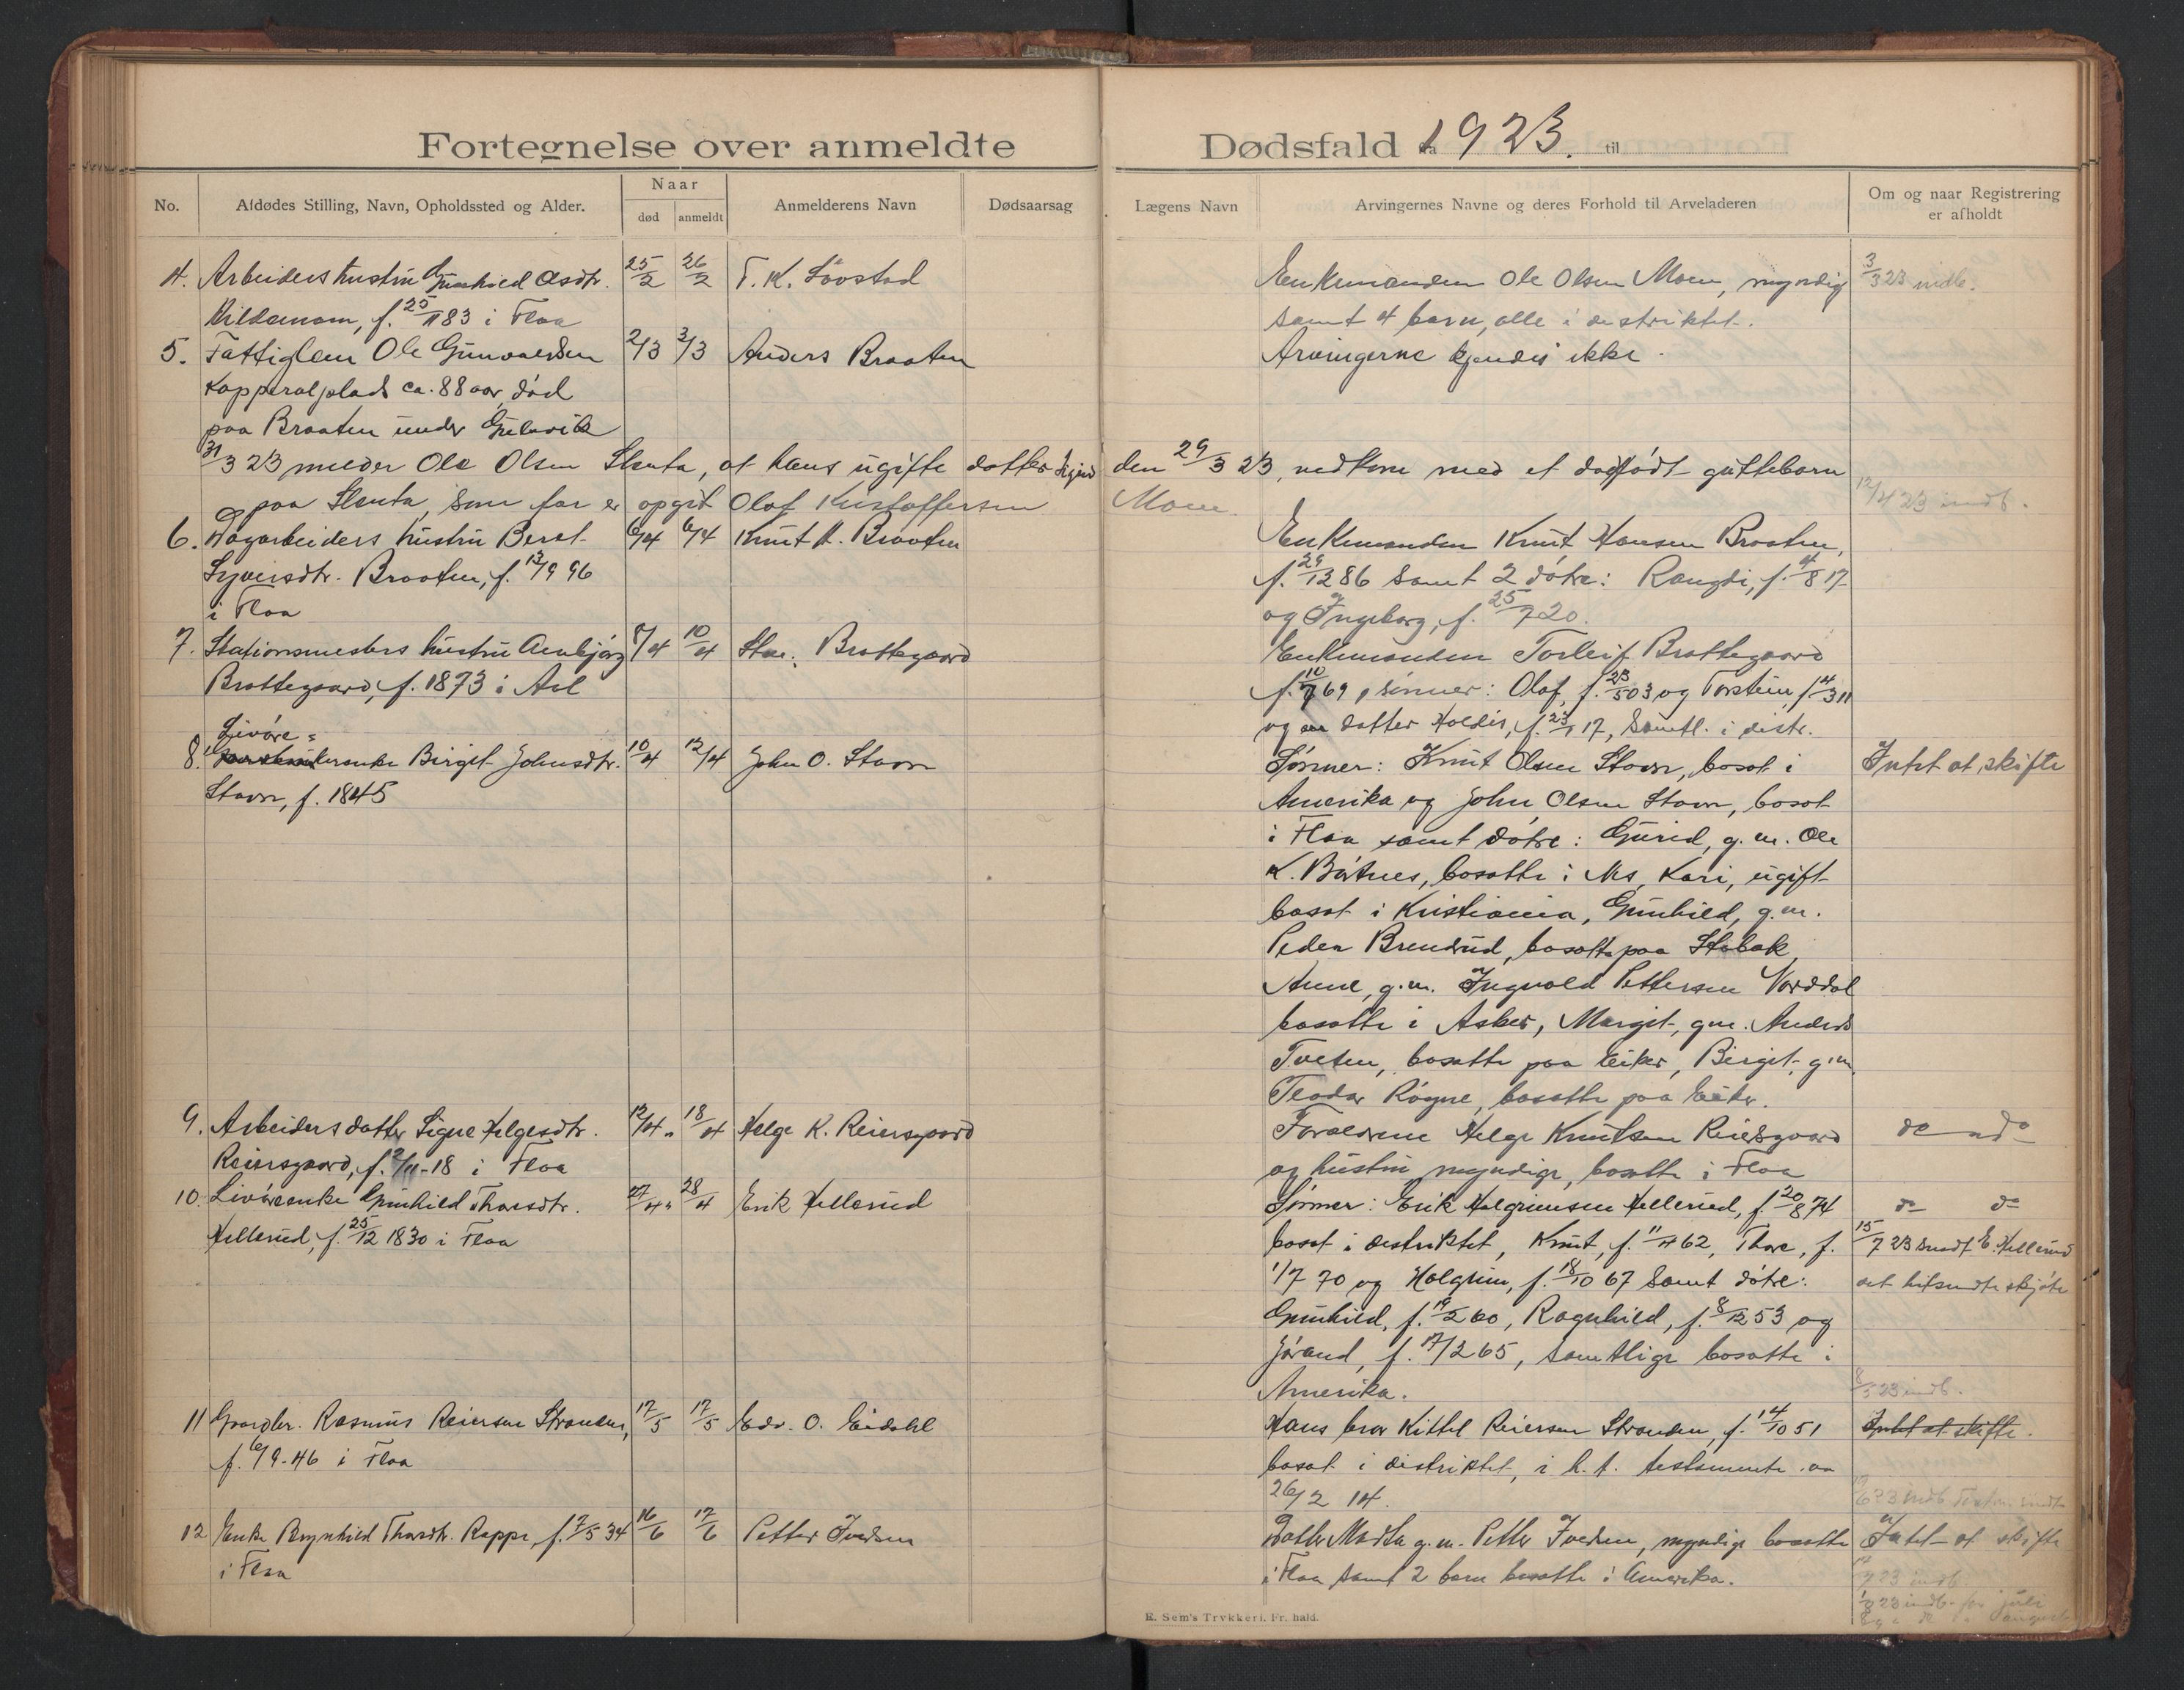 Fortegnelse over anmeldte Dødsfald 1923. til
No.
Afdødes Stilling, Navn, Opholdssted og Alder.
Naar
død
anmeldt
Anmelderens Navn
Dødsaarsag
Lægens Navn
Arvingernes Navne og deres Forhold til Arveladeren
Om og naar Registrering
er afholdt
4. Arbeiders hustru Gunhild Asdtr. 25/2 26/2 T. K. Sævstad Enkemanden Ole Olsen Moen, myndig 3/3 23 indb.
f. 25/4 83 i Flaa samt 4 barn, alle i distriktet.
5. Fattiglem Ole Gunvaldsen 2/3 3/3 Anders Braaten Arvingerne kjendes ikke.
Kapperalplads ca. 88 aar, død
paa Braaten under Gulsvik
31/3 23 melder Ole Olsen Stenta, at hans ugifte datter den 29/3 23, nedkom med et dødfødt guttebarn
paa Stenta, som far er opgit Olaf Kristoffersen Moen. 12/4 23 indb.
6. Dagarbeiders hustru Berat 6/4 6/4 Knut H. Braaten Enkemanden Knut Hansen Braaten,
Syversdtr. Braaten, f. 13/9 96 f. 29/12 86 samt 2 døtre: Rangdi, f. 4/8 17
i Flaa og Ingeborg, f. 25/7 20.
7. Stationsmesters hustru Aambjørg 8/4 10/4 Brattegaard Enkemanden Torleif Brattegaard
Brattegaard, f. 1873 i Aal f. 10/7 69, sønner: Olaf, f. 23/5 03 og Torstein, f. 4/3 11
og en datter Hældis, f. 23/1 17, samtl. i distr.
Livøre-
8. enke Birgit Johnsdtr. 10/4 12/4 John O. Stavn Sønner: Knut Olsen Stavn, bosat i Intet at skifte
Stavn, f. 1845 Amerika og John Olsen Stavn, bosat
i Flaa samt døtre: Gurid, g. m. Ole
K. Børtnes, bosatte i Nes, Kari, ugift
bosat i Kristiania, Gunhild, g.m.
Peder Brendrud, bosatte paa Stabæk
Anne, g.m. Ingvald Pettersen Varddal
bosatte i Asker, Margit, g.m. Anders
Tveten, bosatte paa Eiker, Birgit, g.m.
Teodor Røgne, bosatte paa Eiker.
9. Arbeiders datter Signe Helgesdtr. 12/4 18/4 Helge K. Reiersgaard Forældrene Helge Knutsen Reiersgaard do do
Reiersgaard, f. 2/11-18 i Flaa og hustru, myndige, bosatte i Flaa
10. Livøreenke Gunhild Thorsdtr. 27/4 28/4 Erik Hellerud Sønner: Erik Halgrimsen Hellerud, f. 20/8 74 do do
Hellerud, f. 25/12 1830 i Flaa bosat i distriktet, Knut, f. 11/4 62, Thore, f. 15/7 23 sendt E. Hellerud
1/7 70 og Halgrim, f. 18/10 67 samt døtre: at hitsendte skjøte
Gunhild, f. 19/2 60, Ragnhild, f. 8/12 53 og
Jørand, f. 17/2 65, samtlige bosatte i
Amerika. 8/5 23 indb.
11 Gaardbr. Rasmus Reiersen Stranden, 17/5 17/5 Edv. O. Eidahl Hans bror Kittel Reiersen Stranden, f. 14/10 51 Intet at skifte.
f. 6/9-46 i Flaa bosat i distriktet, i h. t. testamente av
26/2 14.
12 Enke Ragnhild Thordtr. Rappe, f. 7/5 34 16/6 17/6 Petter Iversen Datter Marta g.m. Petter Iversen, myndige bosatte Intet at skifte
i Flaa i Flaa samt 2 barn bosatte i Amerika. 23 indb.
23 indb. for juli
august
E. Sem's Trykkeri. Fr. hald.